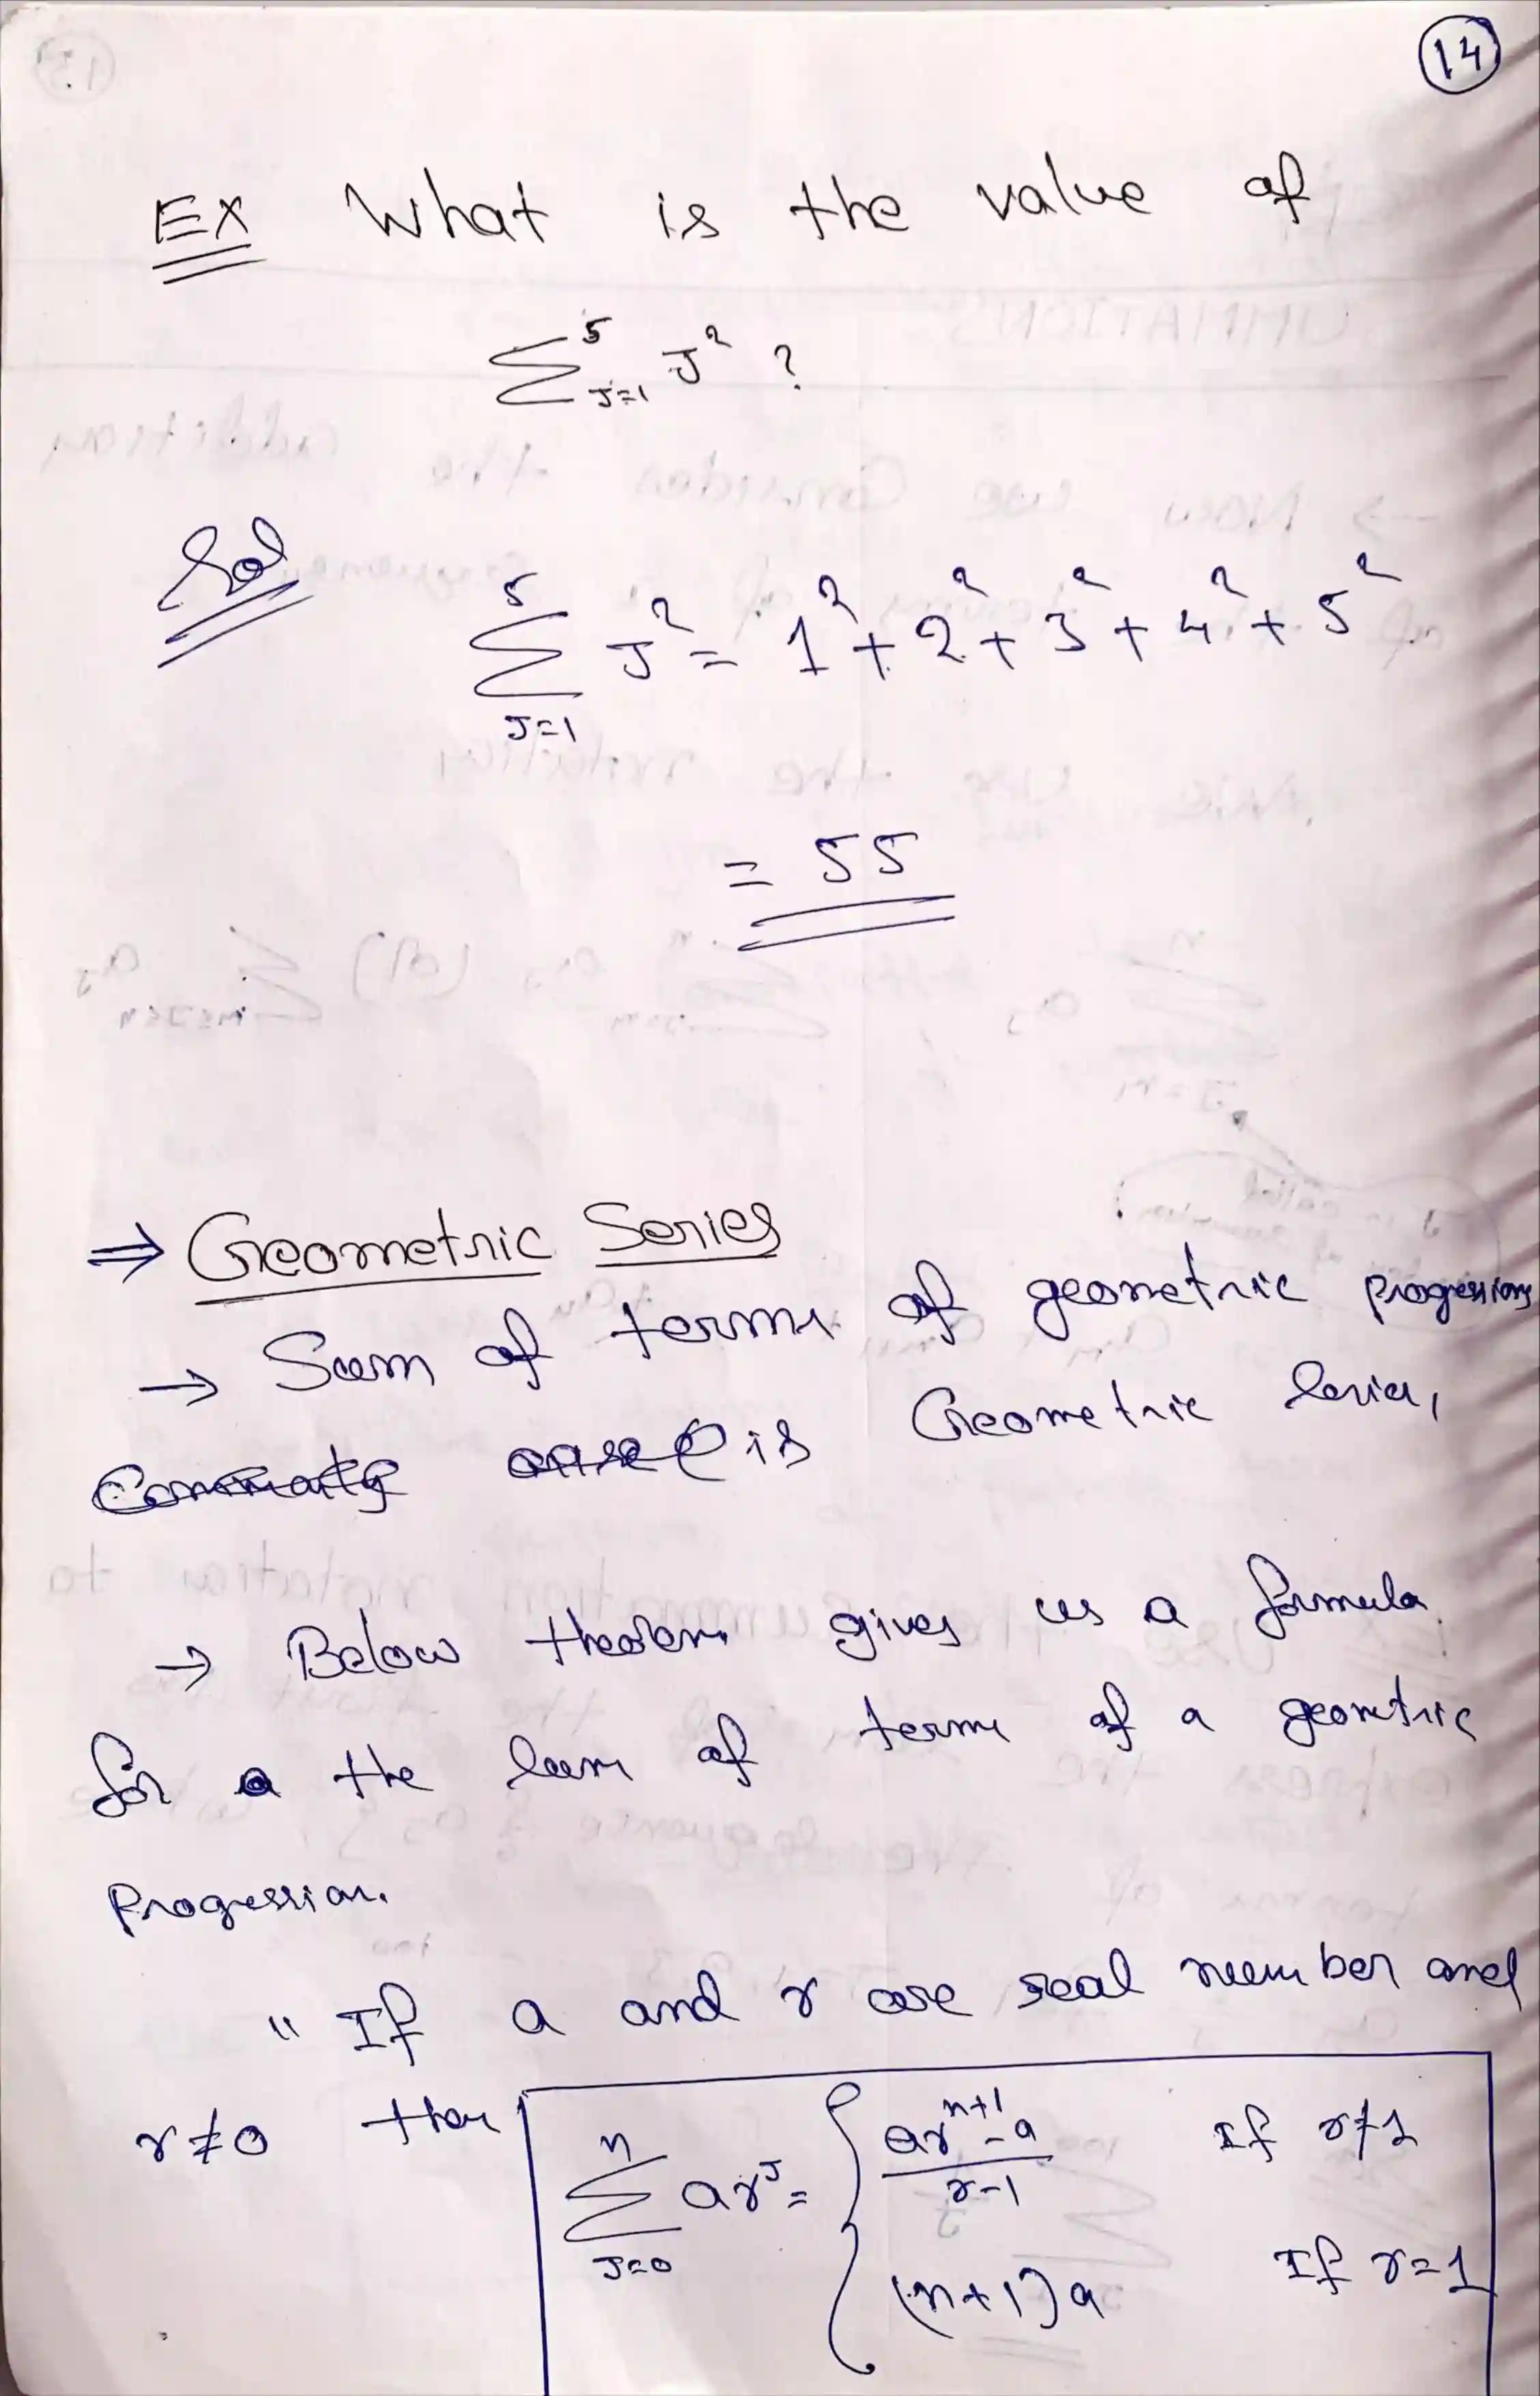 14
EX What is the value of
∑⁵_J=1 J² ?
Sol
∑⁵_J=1 J² = 1² + 2² + 3² + 4² + 5²
= 55
⇒ Geometric Series
→ Sum of terms of geometric progressions
is Geometric Series,
→ Below theorem gives us a formula
for the sum of terms of a geometric
Progression.
" If a and r are real number and
r≠0 then
∑ⁿ_J=0 ar^J = { (ar^(n+1) - a)/(r-1) If r≠1
(n+1)a If r=1